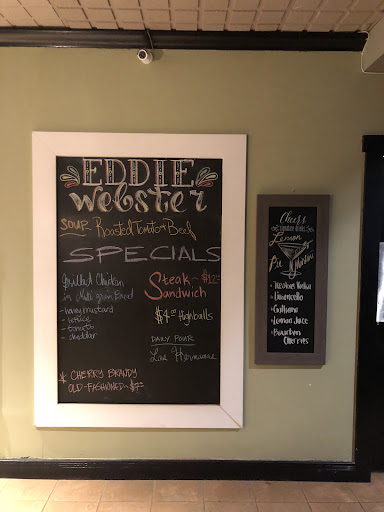 EDDIE
Webster
SOUP Roasted Tomato & Beef
SPECIALS
Grilled Chicken
in Multi grain Bread
- honey mustard
- lettuce
- tomato
- cheddar
Steak ~ $12
Sandwich
$4.00 Highballs
DAILY POUR
Las
* CHERRY BRANDY
OLD-FASHIONED ~ $7
Cheers
signature drinks
Lemon
Pie Martini
• Vodka
• Limoncello
• Galliano
• Lemon Juice
• Bourbon
Cherries